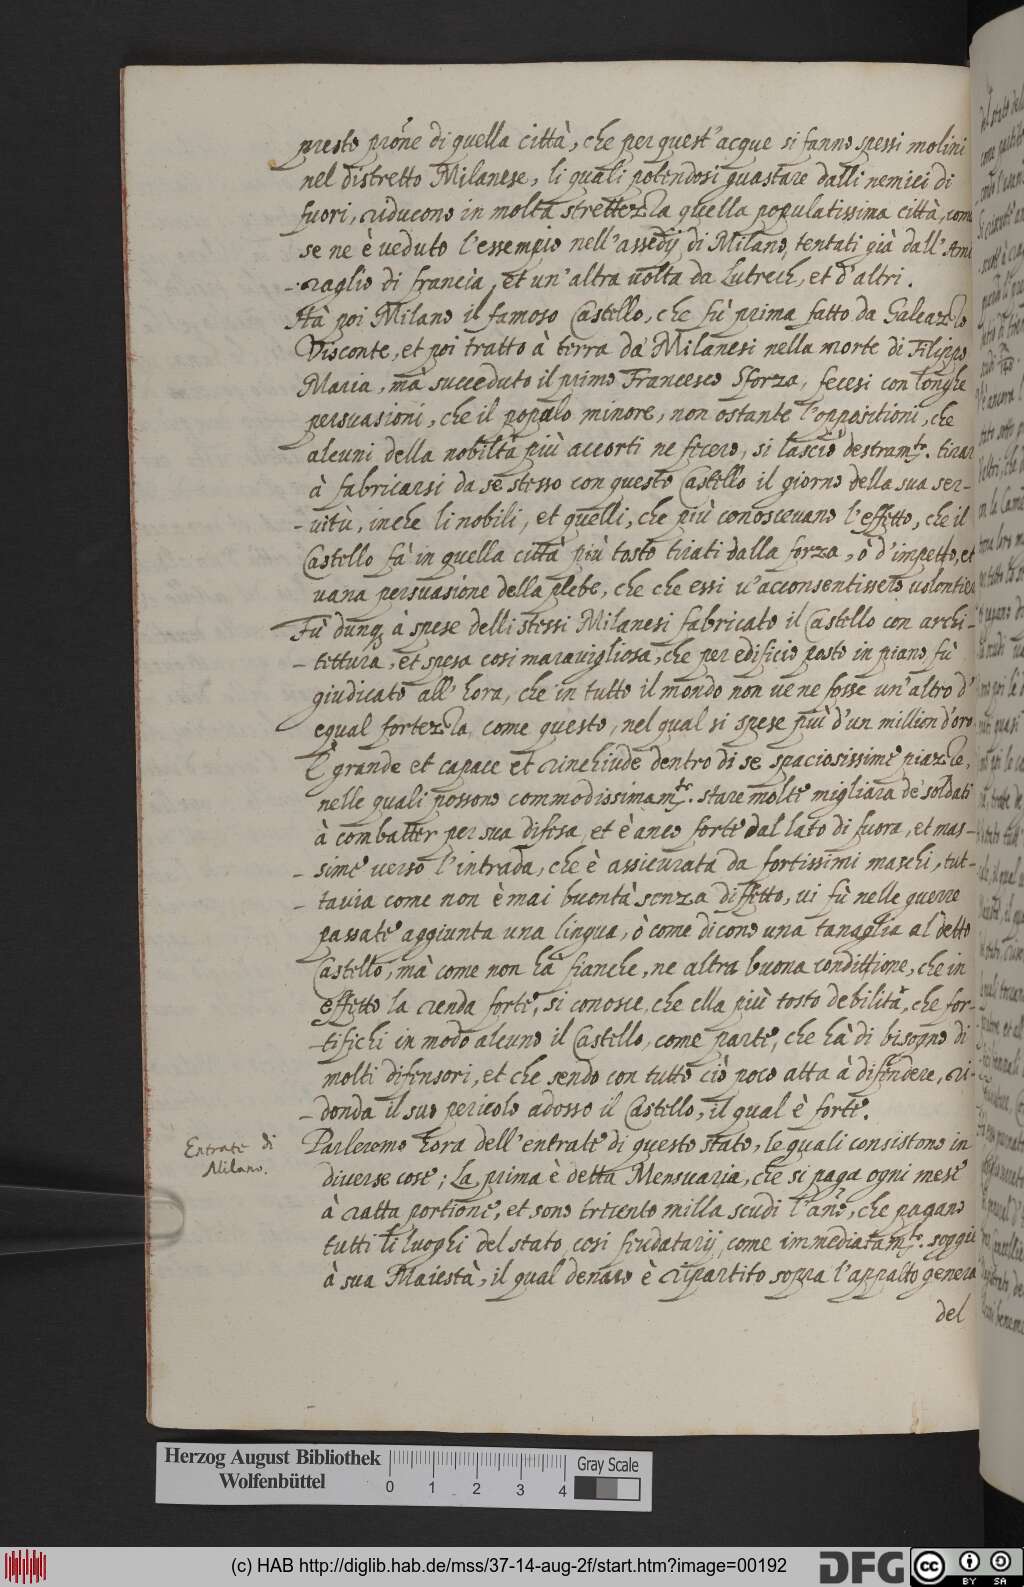 presto prõne di quella città, che per quest'acque si fanno spessi molini
nel distretto Milanese, li quali potendosi guastare dalli nemici di
fuori, riducono in molta strettezza quella populatissima città, come
se ne è veduto l'essempio nell'assedij di Milano, tentati già dall'Ami
-raglio di francia, et un'altra uolta da Lutrech, et d'altri.
Hà poi Milano il famoso Castello, che fù prima fatto da Galeazzo
Visconte, et poi tratto à terra da Milanesi nella morte di Filippo
Maria, mà succeduto il primo Francesco Sforza, fecesi con longhe
persuasioni, che il popolo minore, non ostante l'oppositioni, che
alcuni della nobiltà più accorti ne fecero, si lasciò destramte. tirar
à fabricarsi da se stesso con questo Castello il giorno della sua ser-
-uitù, inche li nobili, et quelli, che più conosceuano l'effetto, che il
Castello fà in quella città più tosto tirati dalla forza, ò d'impetto, et
uana persuasione della plebe, che che essi u'acconsentissero uolontieri
Fù dunq à spese delli stessi Milanesi fabricato il Castello con archi-
-tettura, et spesa cosi marauigliosa, che per edificio posto in piano fù
giudicato all'hora, che in tutto il mondo non ue ne fosse un'altro d'
egual fortezza, come questo, nel qual si spese più d'un million d'oro
È grande et capace et rinchiude dentro di se spaciosissime piazze,
nelle quali possono commodissimamte. stare molte migliara de soldati
à combatter per sua difesa, et è anco forte dal lato di fuora, et mas-
-sime uerso l'intrada, che è assicurata da fortissimi maschi, tut-
-tauia come non è mai buontà senza diffetto, ui fù nelle guerre
passate aggiunta una lingua, ò come dicono una tanaglia al detto
Castello, mà come non hà fianche, ne altra buona condittione, che in
effetto la renda forte, si conosce, che ella più tosto debilità, che for-
-tifichi in modo alcuno il Castello, come parte, che hà di bisogno di
molti difensori, et che sendo con tutto ciò poco atta à difendere, ri-
-donda il suo pericolo adosso il Castello, il qual è forte.
Entrate di
Milano.
Parleremo hora dell'entrate di questo stato, le quali consistono in
diuerse cose; La prima è detta Mensuaria, che si paga ogni mese
à ratta portione, et sono trecento milla scudi l'añe, che pagano
tutti li luoghi del stato, cosi feudatarij, come immediatamte. soggie
à sua Maiestà, il qual denaro è ripartito sopra l'appalto genera
del
Herzog August Bibliothek
Wolfenbüttel
0 1 2 3 4
Gray Scale
(c) HAB http://diglib.hab.de/mss/37-14-aug-2f/start.htm?image=00192
DFG
cc BY SA